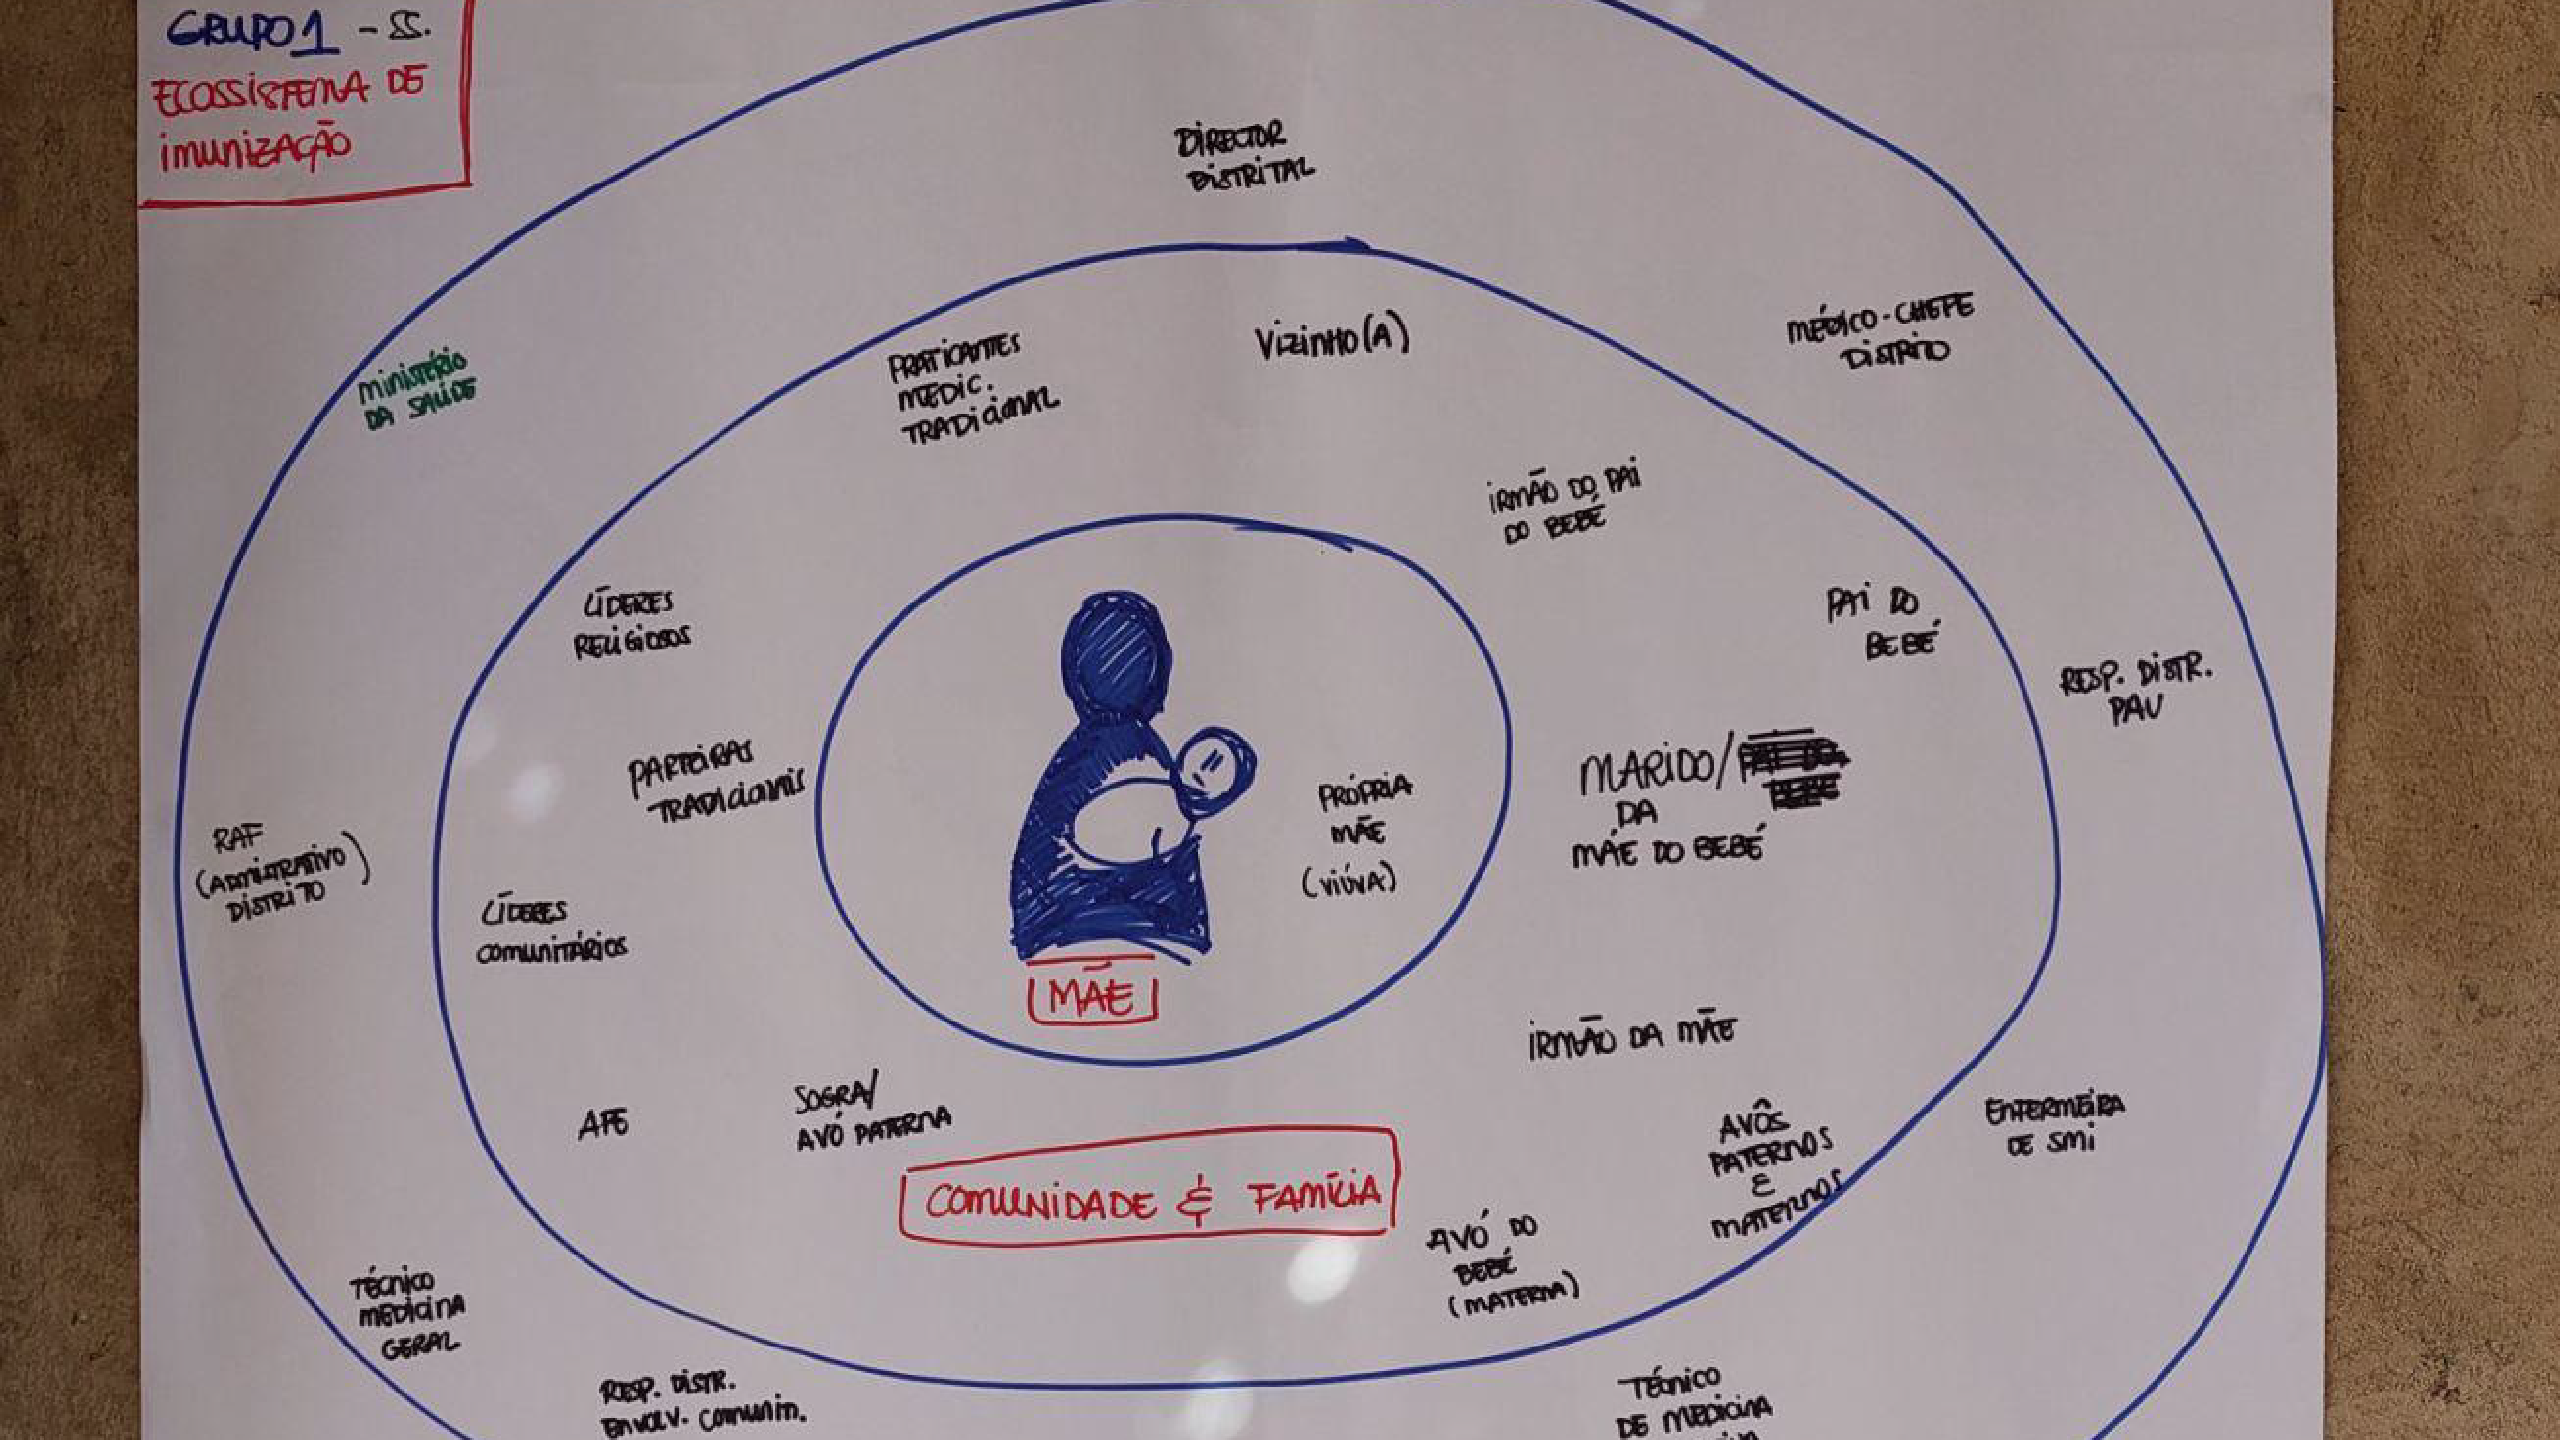 GRUPO 1 - SS.
ECOSSISTEMA DE
IMUNIZAÇÃO
DIRECTOR
DISTRITAL
MINISTÉRIO
DA SAÚDE
PRATICANTES
MEDIC.
TRADICIONAL
VIZINHO(A)
MÉDICO-CHEFE
DISTRITO
IRMÃO DO PAI
DO BEBÉ
LÍDERES
RELIGIOSOS
PAI DO
BEBÉ
RESP. DISTR.
PAV
PARTEIRAS
TRADICIONAIS
PRÓPRIA
MÃE
(VIÚVA)
MARIDO/
DA
MÃE DO BEBÉ
RAF
(ADMINTRATIVO)
DISTRITO
LÍDERES
COMUNITÁRIOS
MÃE
IRMÃO DA MÃE
APE
SOGRA/
AVÓ PATERNA
COMUNIDADE & FAMÍLIA
AVÔS
PATERNOS
E
MATERNOS
ENFERMEIRA
DE SMI
AVÓ DO
BEBÉ
(MATERNA)
TÉCNICO
MEDICINA
GERAL
RESP. DISTR.
ENVOLV. COMUNIN.
TÉCNICO
DE MEDICINA